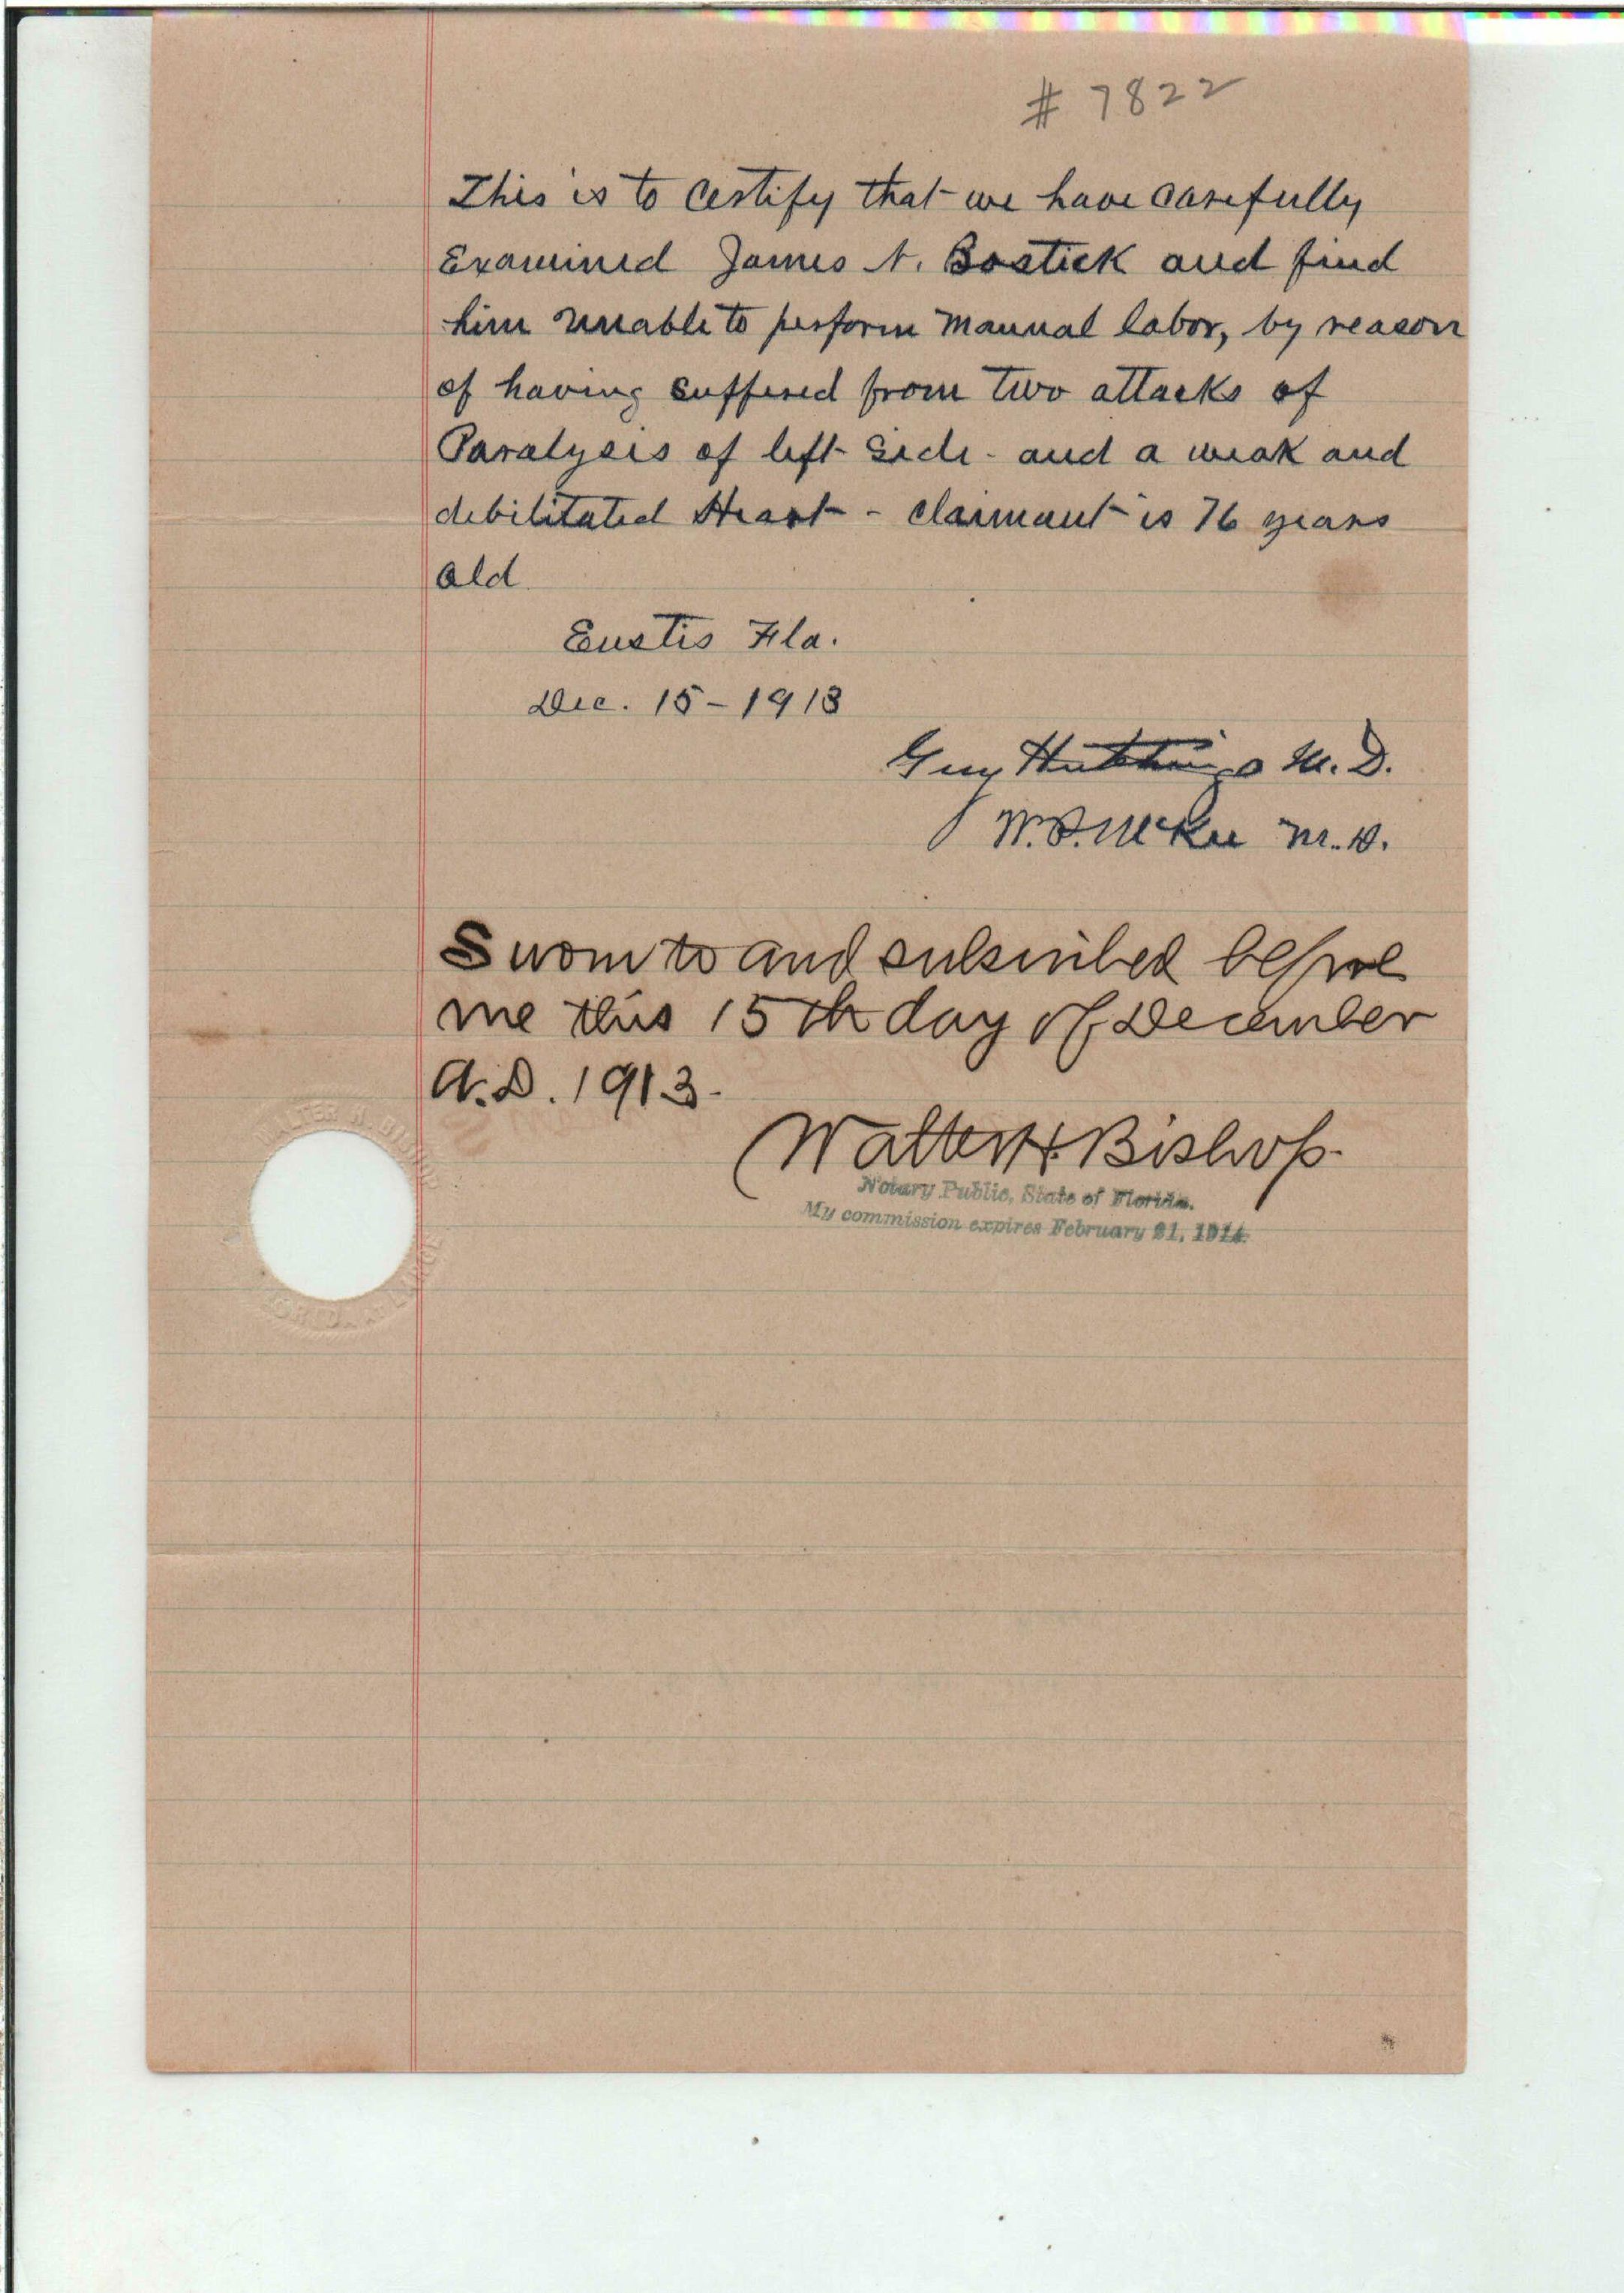 # 7822
This is to certify that we have carefully
Examined James A. Bostick and find
him unable to perform manual labor, by reason
of having suffered from two attacks of
Paralysis of left side - and a weak and
debilitated Heart - claimant is 76 years
old
Eustis Fla.
Dec. 15 - 1913
Guy Hutchings M.D.
McKee M.D.
Sworn to and subscribed before
me this 15th day of December
A.D. 1913-
Walter H. Bishop.
Notary Public, State of Florida.
My commission expires February 21, 1914.
WALTER H. BISHOP